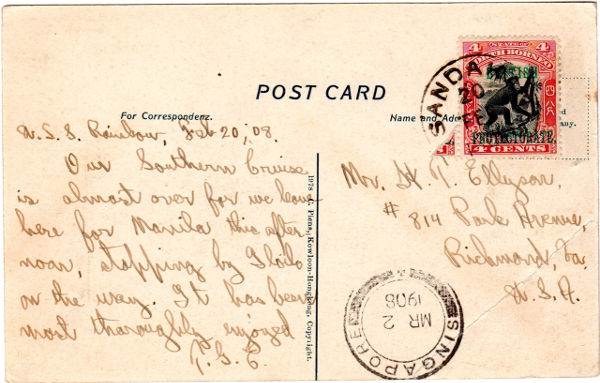 POST CARD
For Correspondenz.
Name and Add
STATE OF
NORTH BORNEO
4 4
BRITISH
PROTECTORATE.
4 CENTS
SANDA
20
FE
ed
any.
U.S.S. Rainbow, Feb 20, '08.
Our Southern Cruise
is almost over for we leave
here for Manila this after-
noon, stopping by Iloilo
on the way. It has been
most thoroughly enjoyed
T.G.E.
Mr. H. T. Ellyson,
# 814 Park Avenue,
Richmond, Va.
U.S.A.
Kowloon-Hongkong. Copyright.
SINGAPORE
MR 2
1908